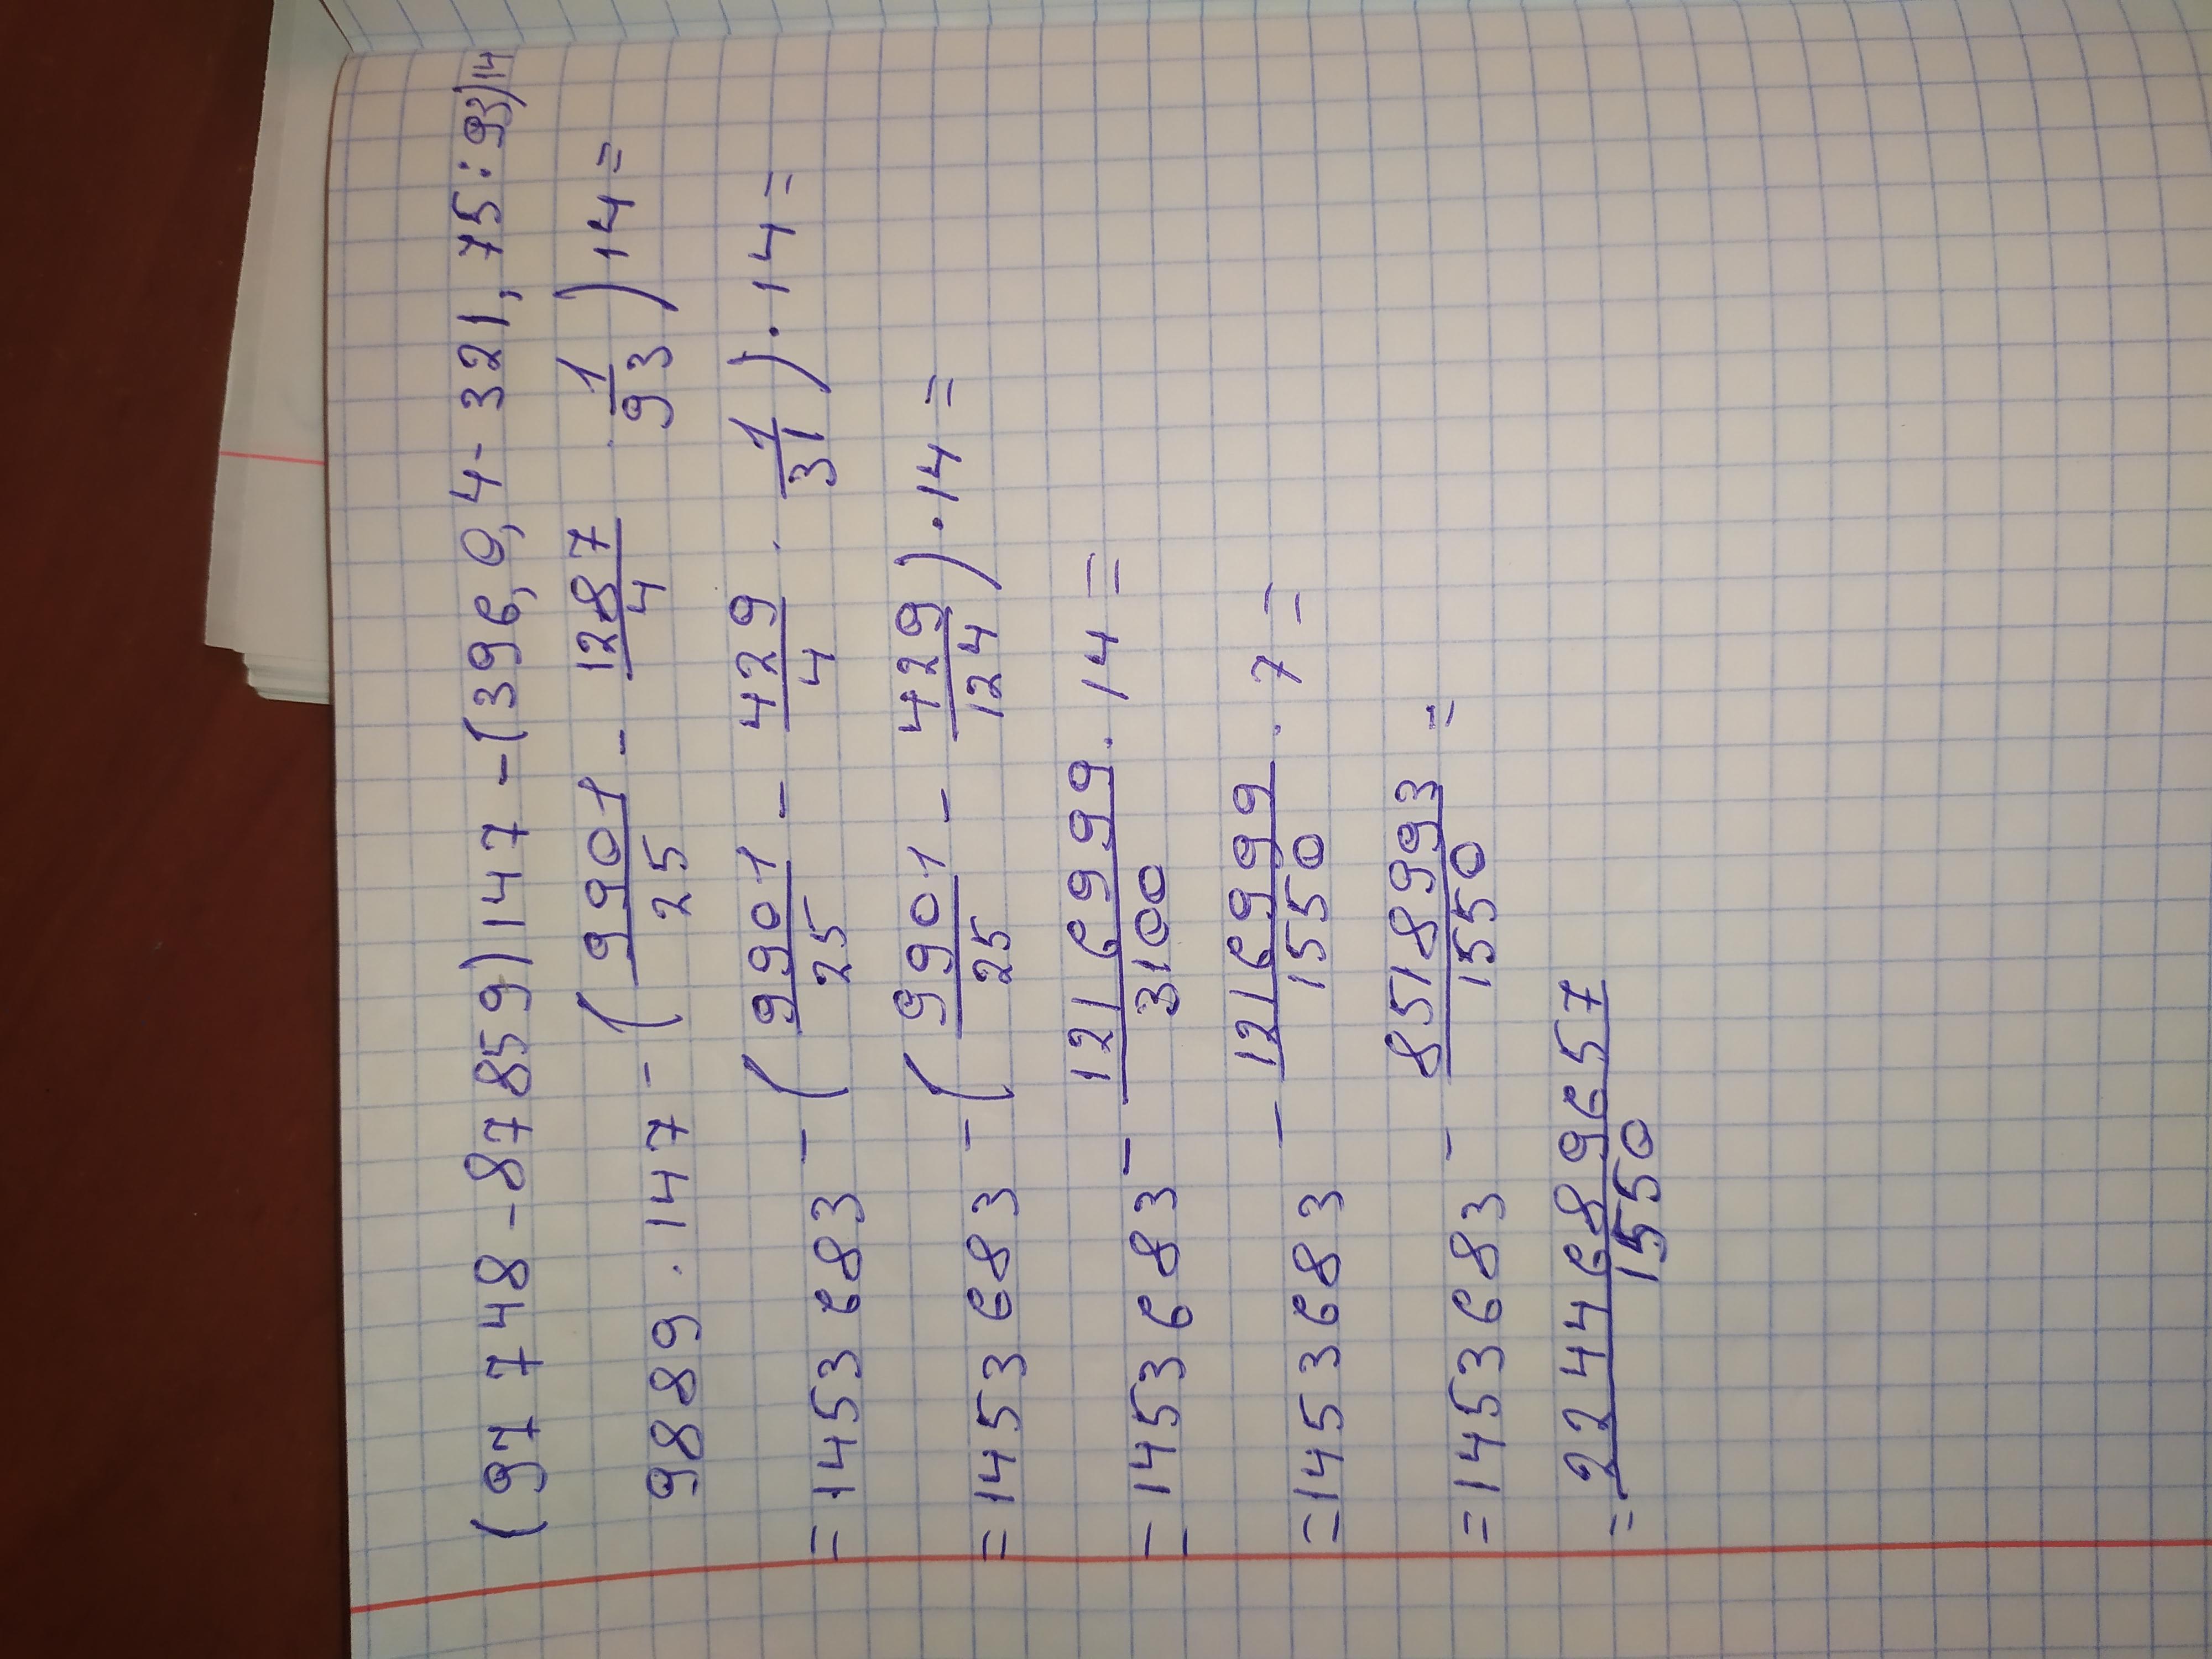 (97 748 - 87859) 147 - (396,0,4 - 321,75 : 93) 14
9889 . 147 - ( 9901/25 - 1287/4 . 1/93 ) 14 =
= 1453 683 - ( 9901/25 - 429/4 . 1/31 ) . 14 =
= 1453 683 - ( 9901/25 - 429/124 ) . 14 =
= 1453 683 - 1216999/3100 . 14 =
= 1453683 - 1216999/1550 . 7 =
= 1453683 - 8518993/1550 =
= 2244689657/1550